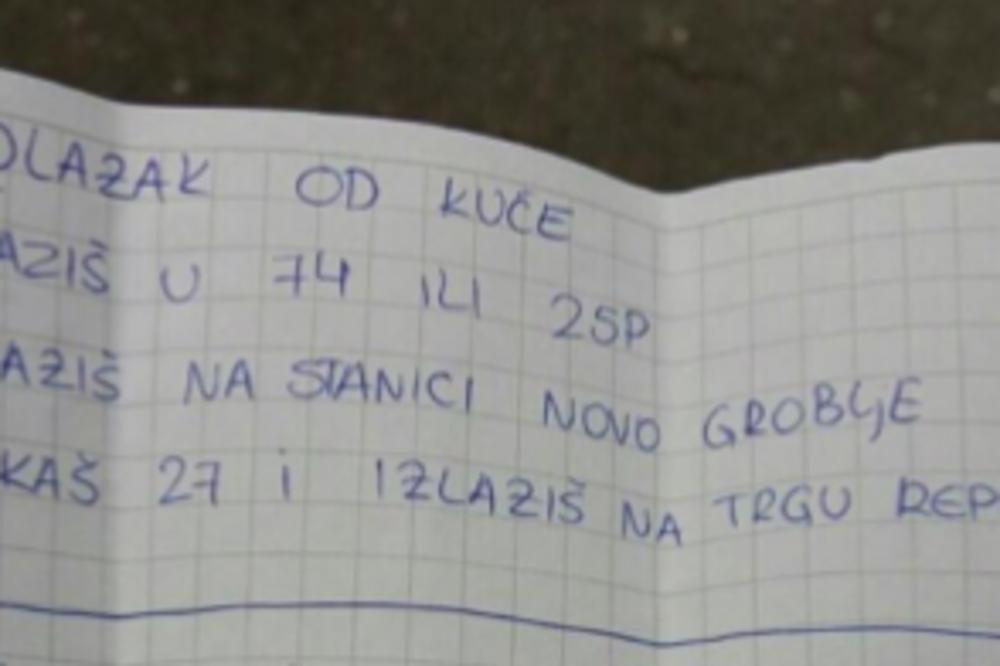 OLAZAK OD KUĆE
AZIŠ U 74 ILI 25P
AZIŠ NA STANICI NOVO GROBLJE
KAŠ 27 i IZLAZIŠ NA TRGU REP